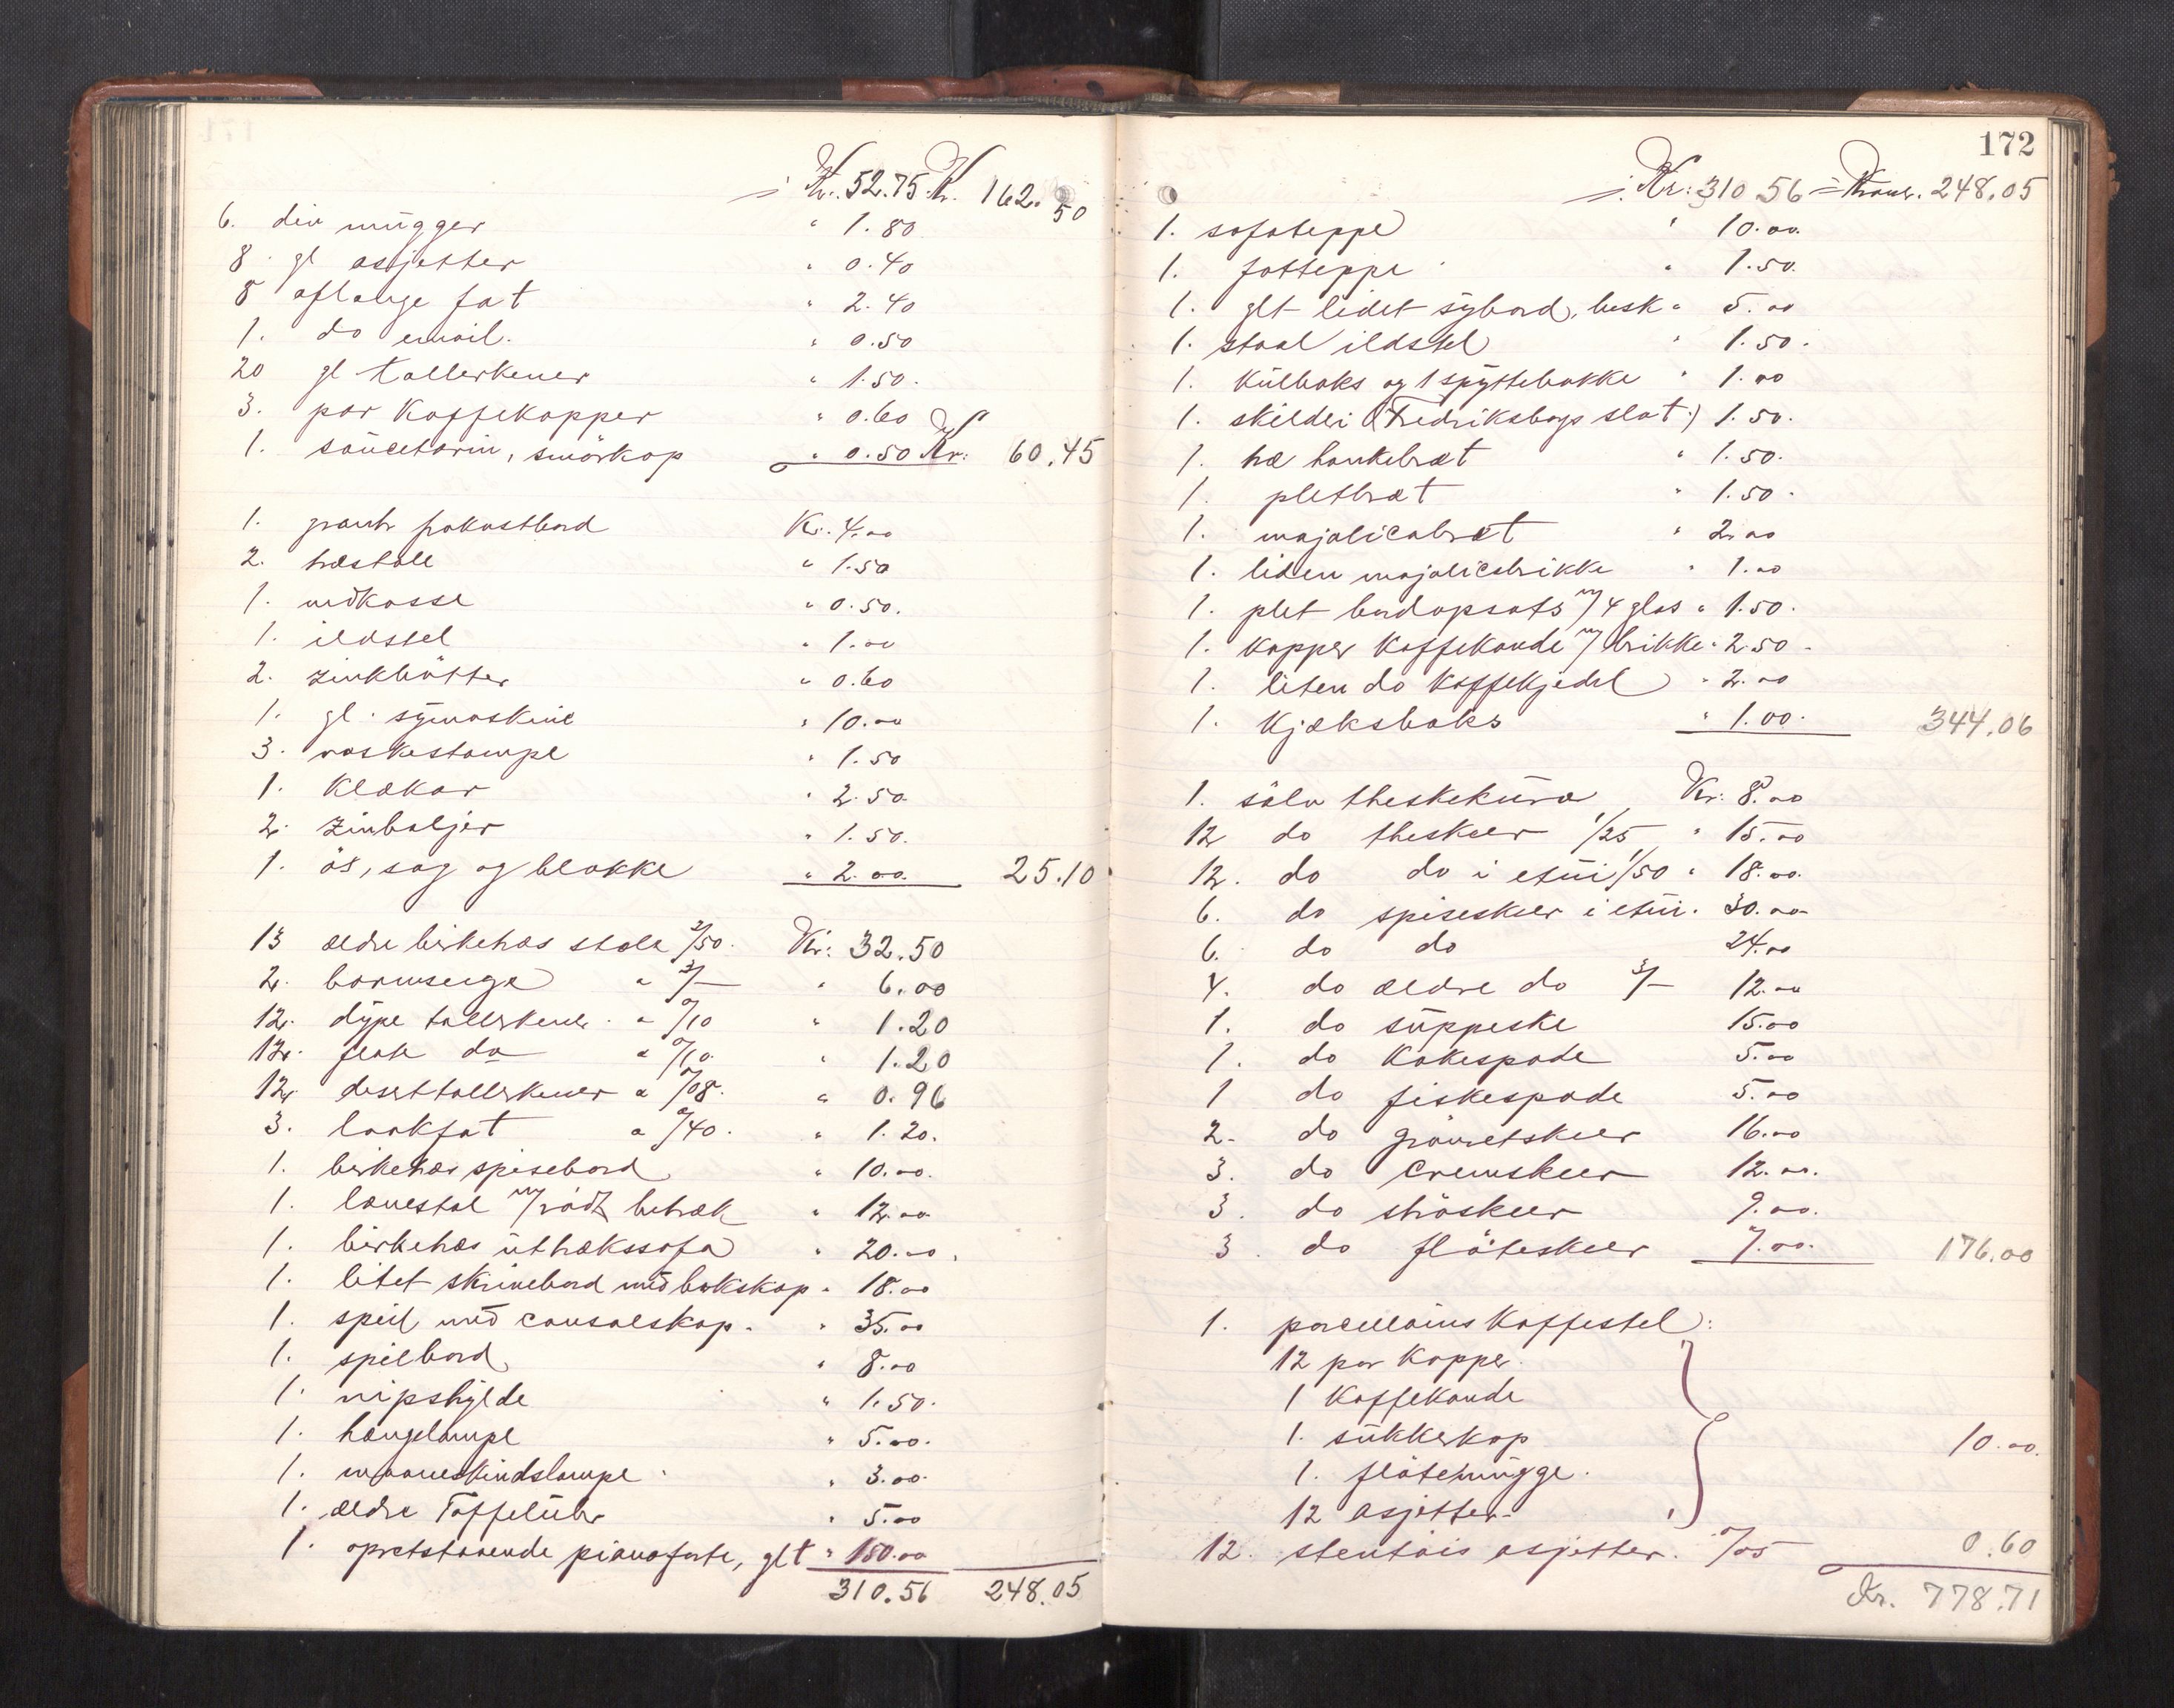 172
Kr. 52.75. Kr. 162.50
6. div mügger " 1.80
8. gl asjetter " 0.40
8 aflange fat " 2.40
1. do email. " 0.50
20 gl tallerkener " 1.50.
3. par Kaffekopper " 0.60
1. saücetorin, smörkop " 0.50 Kr: 60.45
1. frokostbord Kr. 4.00
2. træstole " 1.50
1. vedkasse " 0.50.
1. ildstel " 1.00
2. zinkbötter " 0.60
1. gl. symaskine " 10.00
3. vaskestampe " 1.50
1. Klækar " 2.50
2. zinbaljer " 1.50.
1. ös, sag og blokke " 2.00. 25.10
13 ældre birketræs stole 2/50. Kr: 32.50
2. barnsenge a 3/- " 6.00
12. dype tallerkener. a 0/10 " 1.20
12. flate do a 0/10. " 1.20
12. deserttallerkener a 0/08. " 0.96
3. laakfat a 0/40. " 1.20.
1. birketræs spisebord " 10.00.
1. lænestol m/ rödt betræk " 12.00
1. birketræs üttrækssofa " 20.00.
1. litet skrivebord med bokskap " 18.00
1. speil med consolskap. " 35.00
1. spilbord " 8.00
1. nipshylde " 1.50.
1. hængelampe " 5.00.
1. maaneskindslampe. " 3.00.
1. ældre Taffelühr " 5.00
1. opretstaaende pianoforte, glt " 150.00
310.56 248.05
Kr: 310 56 = Kroner. 248.05
1. sofateppe " 10.00.
1. fotteppe " 1.50.
1. glt lidet sybord, besk " 5.00
1. staal ildstel " 1.50.
1. Külboks og 1 spyttebakke " 1.00
1. skilderi (Fredriksborgs slot) 1.50.
1. træ hankebræt " 1.50.
1. pletbræt " 1.50.
1. majolicabræt " 2.00
1. liden majolicabrikke " 1.00
1. plet bordopsats m/ 4 glas " 1.50.
1. kopper Kaffekande m/ brikke " 2.50.
1. liten do Kaffekjedel " 2.00
1. Kjæksboks " 1.00. 344.06
1. sölv theskekürv Kr: 8.00
12 do theskeer 1/25 " 15.00
12. do do i etüi 1/50 " 18.00.
6. do spiseskeer i etüi. 30.00
6. do do 24.00
4. do ældre do 3/- 12.00
1. do süppeske 15.00
1. do Kakespade 5.00
1 do fiskespade 5.00
2. do grönretskeer 16.00
3. do cremskeer 12.00.
3. do ströskeer 9.00.
3. do flöteskeer 7.00. 176.00
1. porcellains Kaffestel:
12 par Kopper.
1 Kaffekande
1. sükkerkop 10.00.
1. flötemügge.
12 asjetter
12. stentöis asjetter. 0/05 0.60
Kr. 778.71